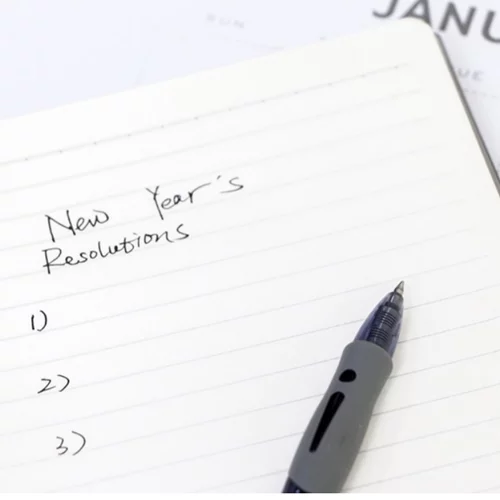 SUN
JANU
UE
New Year's
Resolutions
1)
2)
3)